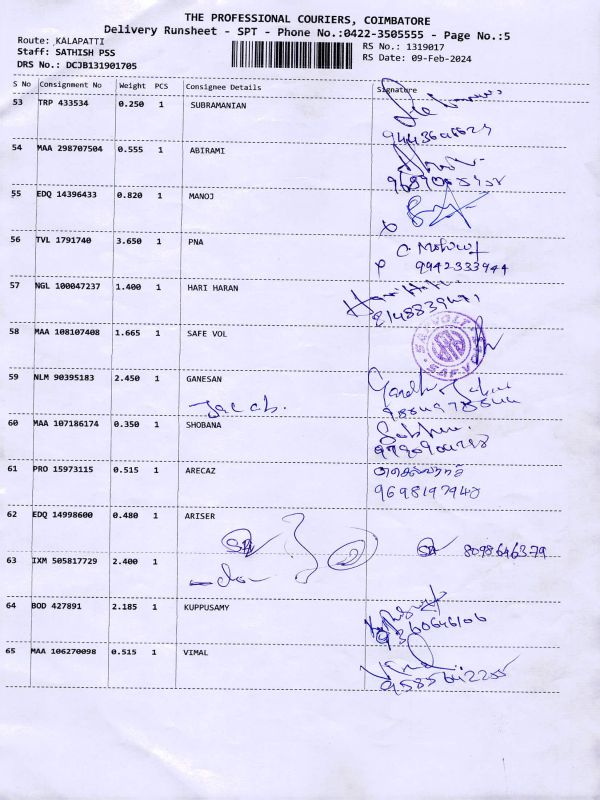 THE PROFESSIONAL COURIERS, COIMBATORE
Delivery Runsheet - SPT - Phone No.:0422-3505555 - Page No.:5
Route: KALAPATTI
RS No.: 1319017
Staff: SATHISH PSS
RS Date: 09-Feb-2024
DRS No.: DCJB131901705
S No Consignment No Weight PCS Consignee Details Signature
53 TRP 433534 0.250 1 SUBRAMANIAN
54 MAA 298707504 0.555 1 ABIRAMI
55 EDQ 14396433 0.820 1 MANOJ
56 TVL 1791740 3.650 1 PNA
9942333944
57 NGL 100047237 1.400 1 HARI HARAN
58 MAA 108107408 1.665 1 SAFE VOL
59 NLM 90395183 2.450 1 GANESAN
Jacob.
60 MAA 107186174 0.350 1 SHOBANA
61 PRO 15973115 0.515 1 ARECAZ
9698197940
62 EDQ 14998600 0.480 1 ARISER
8098646379
63 IXM 505817729 2.400 1
64 BOD 427891 2.185 1 KUPPUSAMY
9360646106
65 MAA 106270098 0.515 1 VIMAL
9585642255